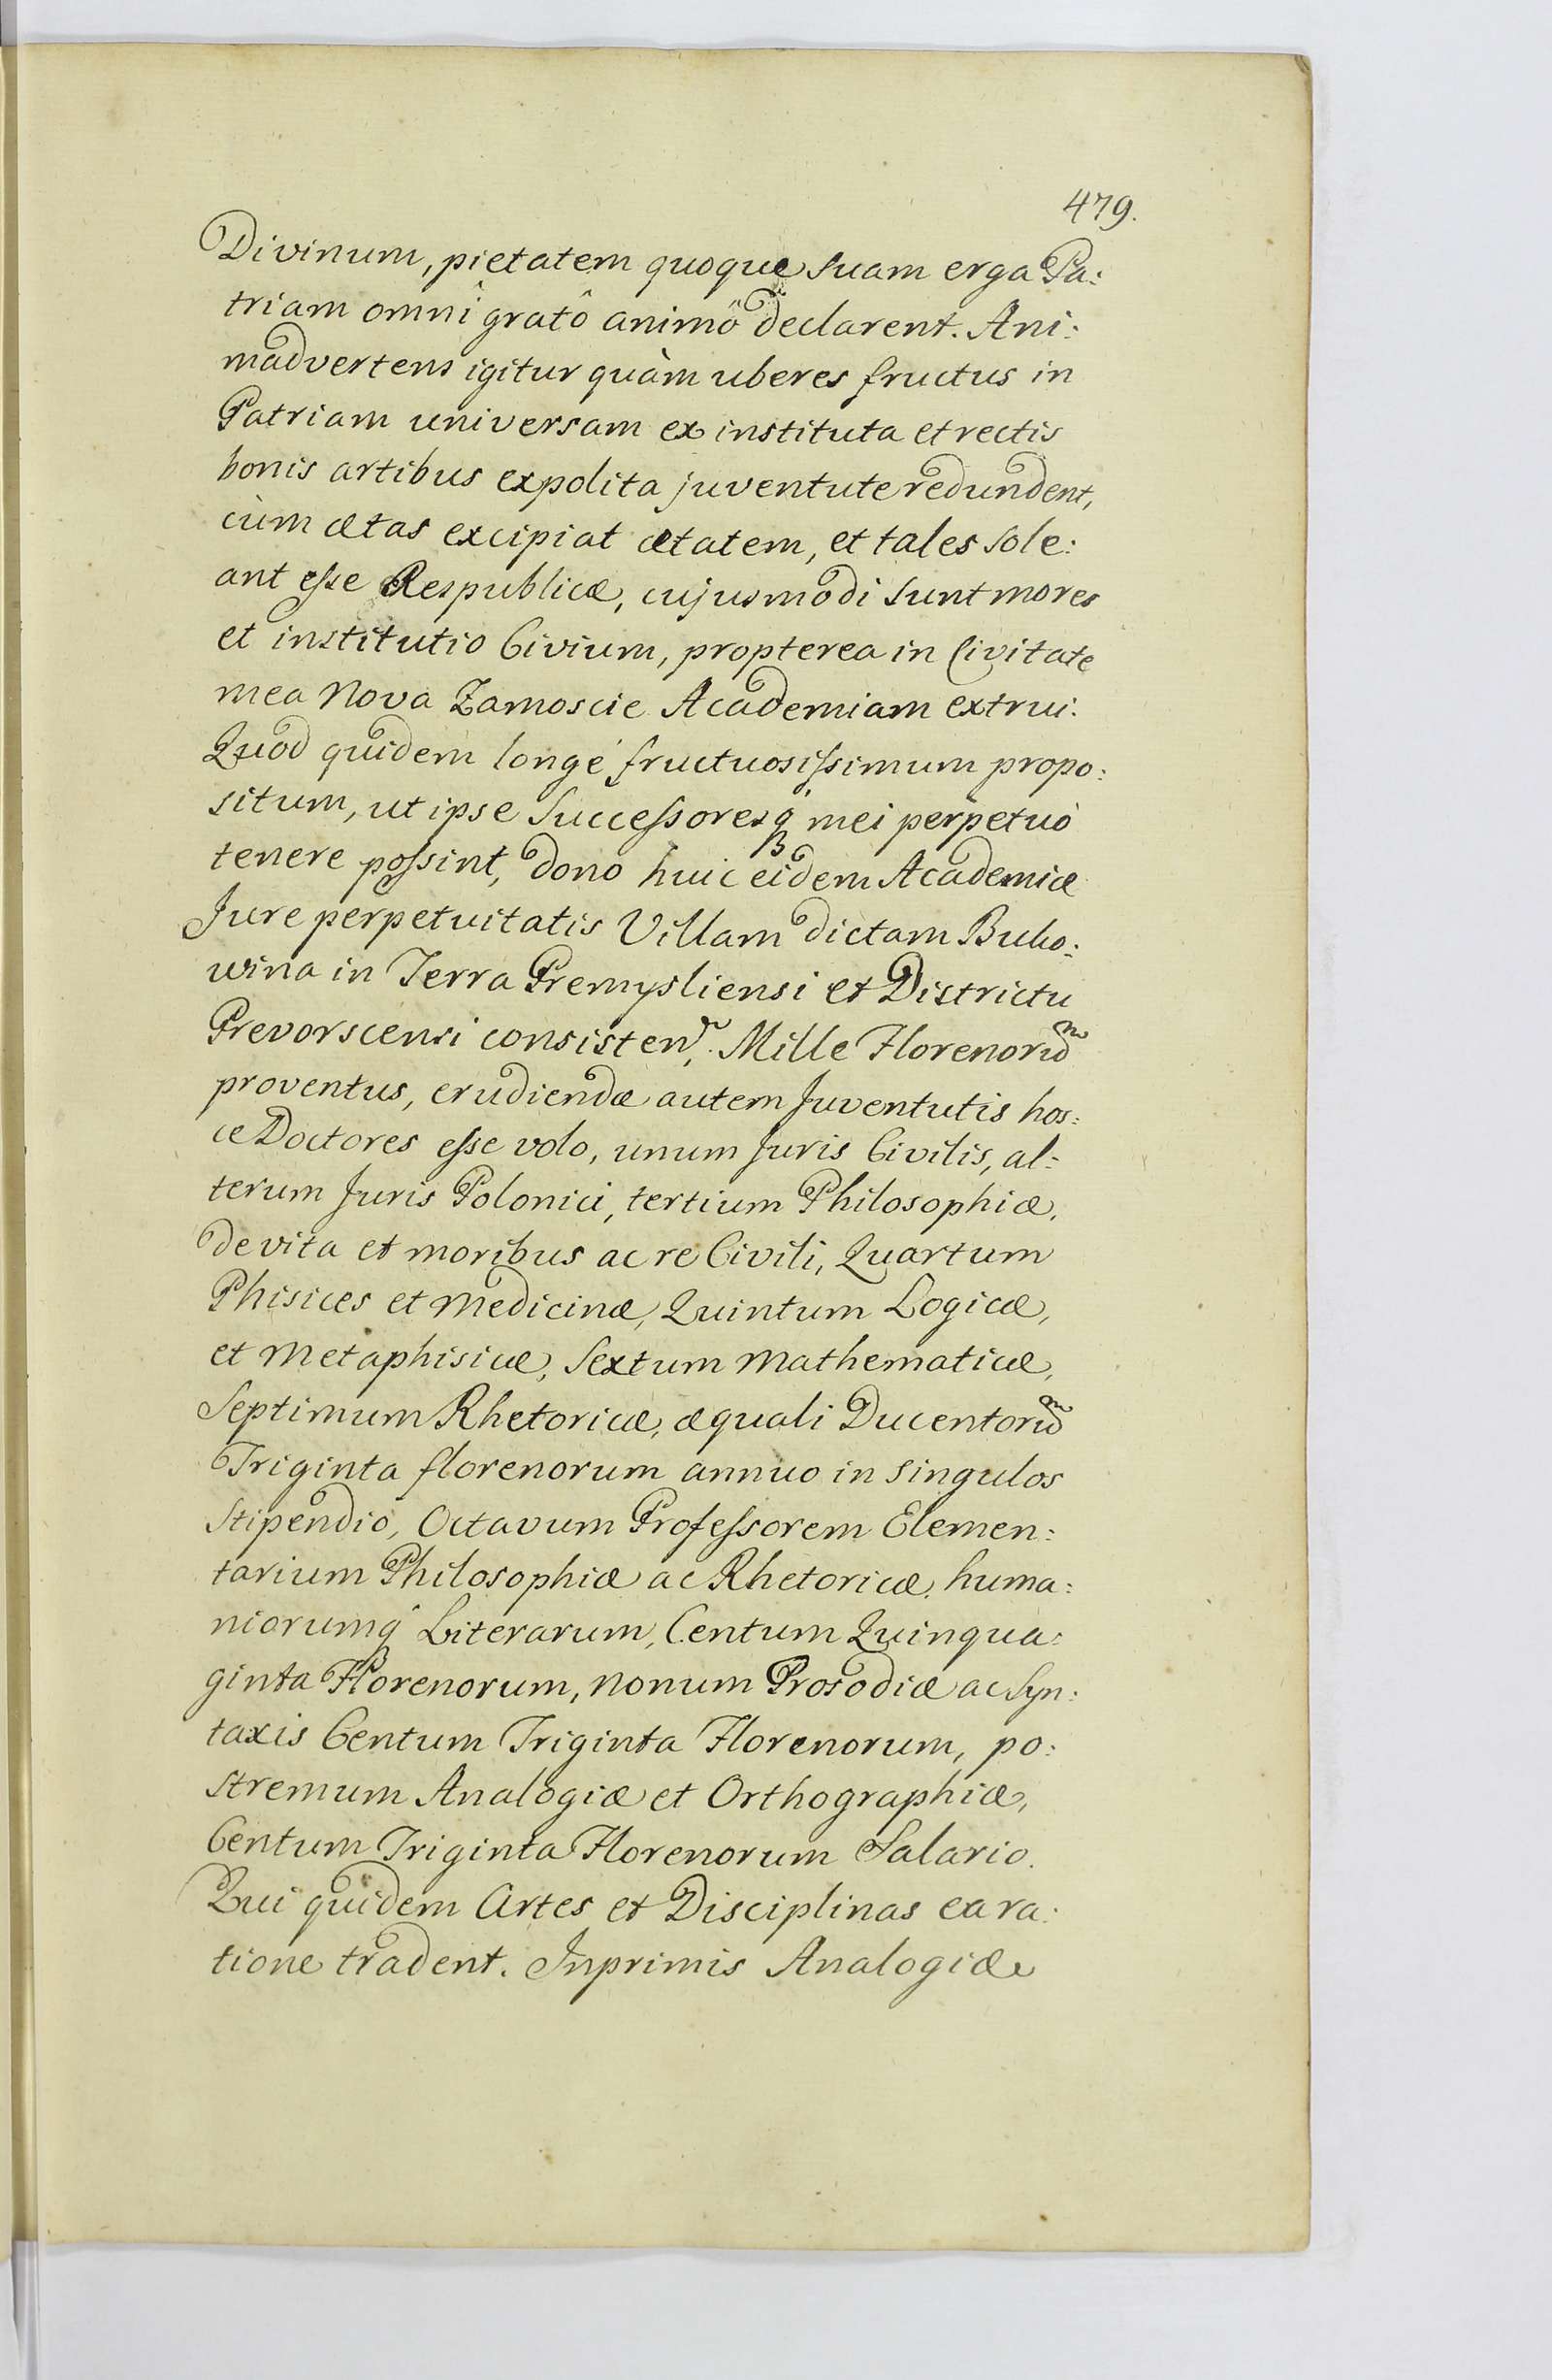 479.
Divinum, pietatem quoque suam erga Pa:
triam omni gratô animô declarent. Ani:
madvertens igitur quàm uberes fructus in
Patriam universam ex instituta et rectis
bonis artibus expolita juventute redundent,
cùm ætas excipiat ætatem, et tales sole:
ant esse Respublicæ, cujusmodi sunt mores
et institutio Civium, propterea in Civitate
mea Nova Zamoscie Academiam extrui.
Quod quidem longé fructuosissimum propo:
situm, ut ipse Successoresq́ mei perpetuò
tenere possint, dono huic eidem Academiæ
Jure perpetuitatis Villam dictam Buko:
wina in Terra Premysliensi et Districtu
Prevorscensi consisten. Mille Florenorũ
proventus, erudiendæ autem Juventutis hos:
ce Doctores esse volo, unum Juris Civilis, al:
terum Juris Polonici, tertium Philosophiæ,
de vita et moribus ac re Civili, Quartum
Phisices et Medicinæ, Quintum Logicæ,
et Metaphisicæ, Sextum Mathematicæ,
Septimum Rhetoricæ, æquali Ducentorũ
Triginta florenorum annuo in singulos
Stipendio, Octavum Professorem Elemen:
tarium Philosophiæ ac Rhetoricæ, huma:
niorumq́ Literarum, Centum Quinqua:
ginta Florenorum, nonum Prosodiæ ac Syn:
taxis Centum Triginta Florenorum, po:
stremum Analogiæ et Orthographiæ,
Centum Triginta Florenorum Salario.
Qui quidem Artes et Disciplinas ea ra:
tione tradent. Inprimis Analogiæ